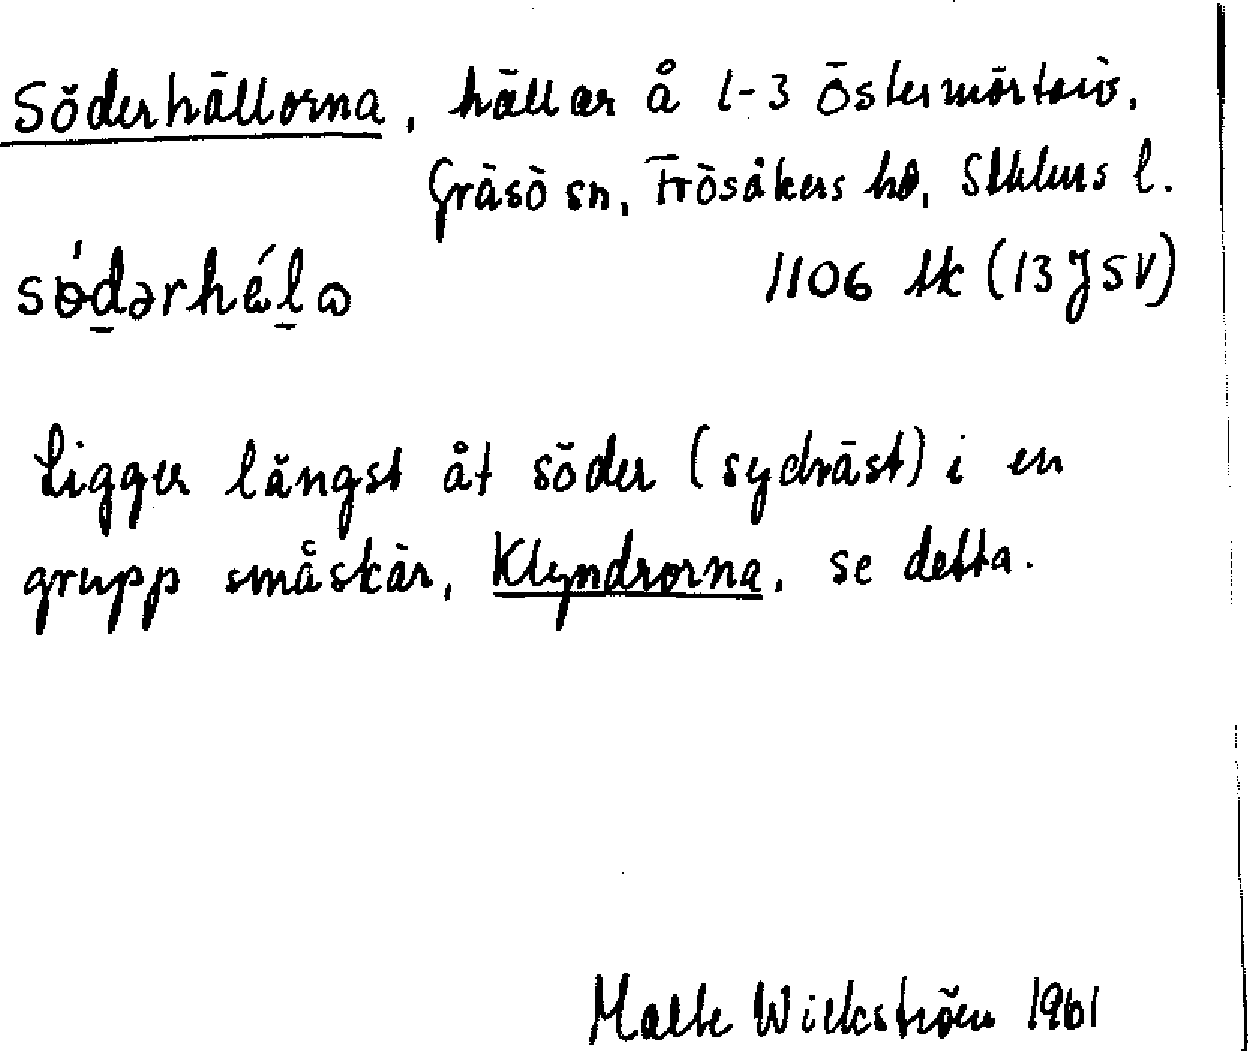 Söderhällorna, hällar å 1-3 Östermörtarö.
Gräsö sn, Frösåkers hd, Sthlms l.
sө́dərhɛ́lɷ 1106 tk (13 J SV)
Ligger längst åt söder (sydväst) i en
grupp småskär, Klyndrorna, se detta.
Malte Wilkström 1961